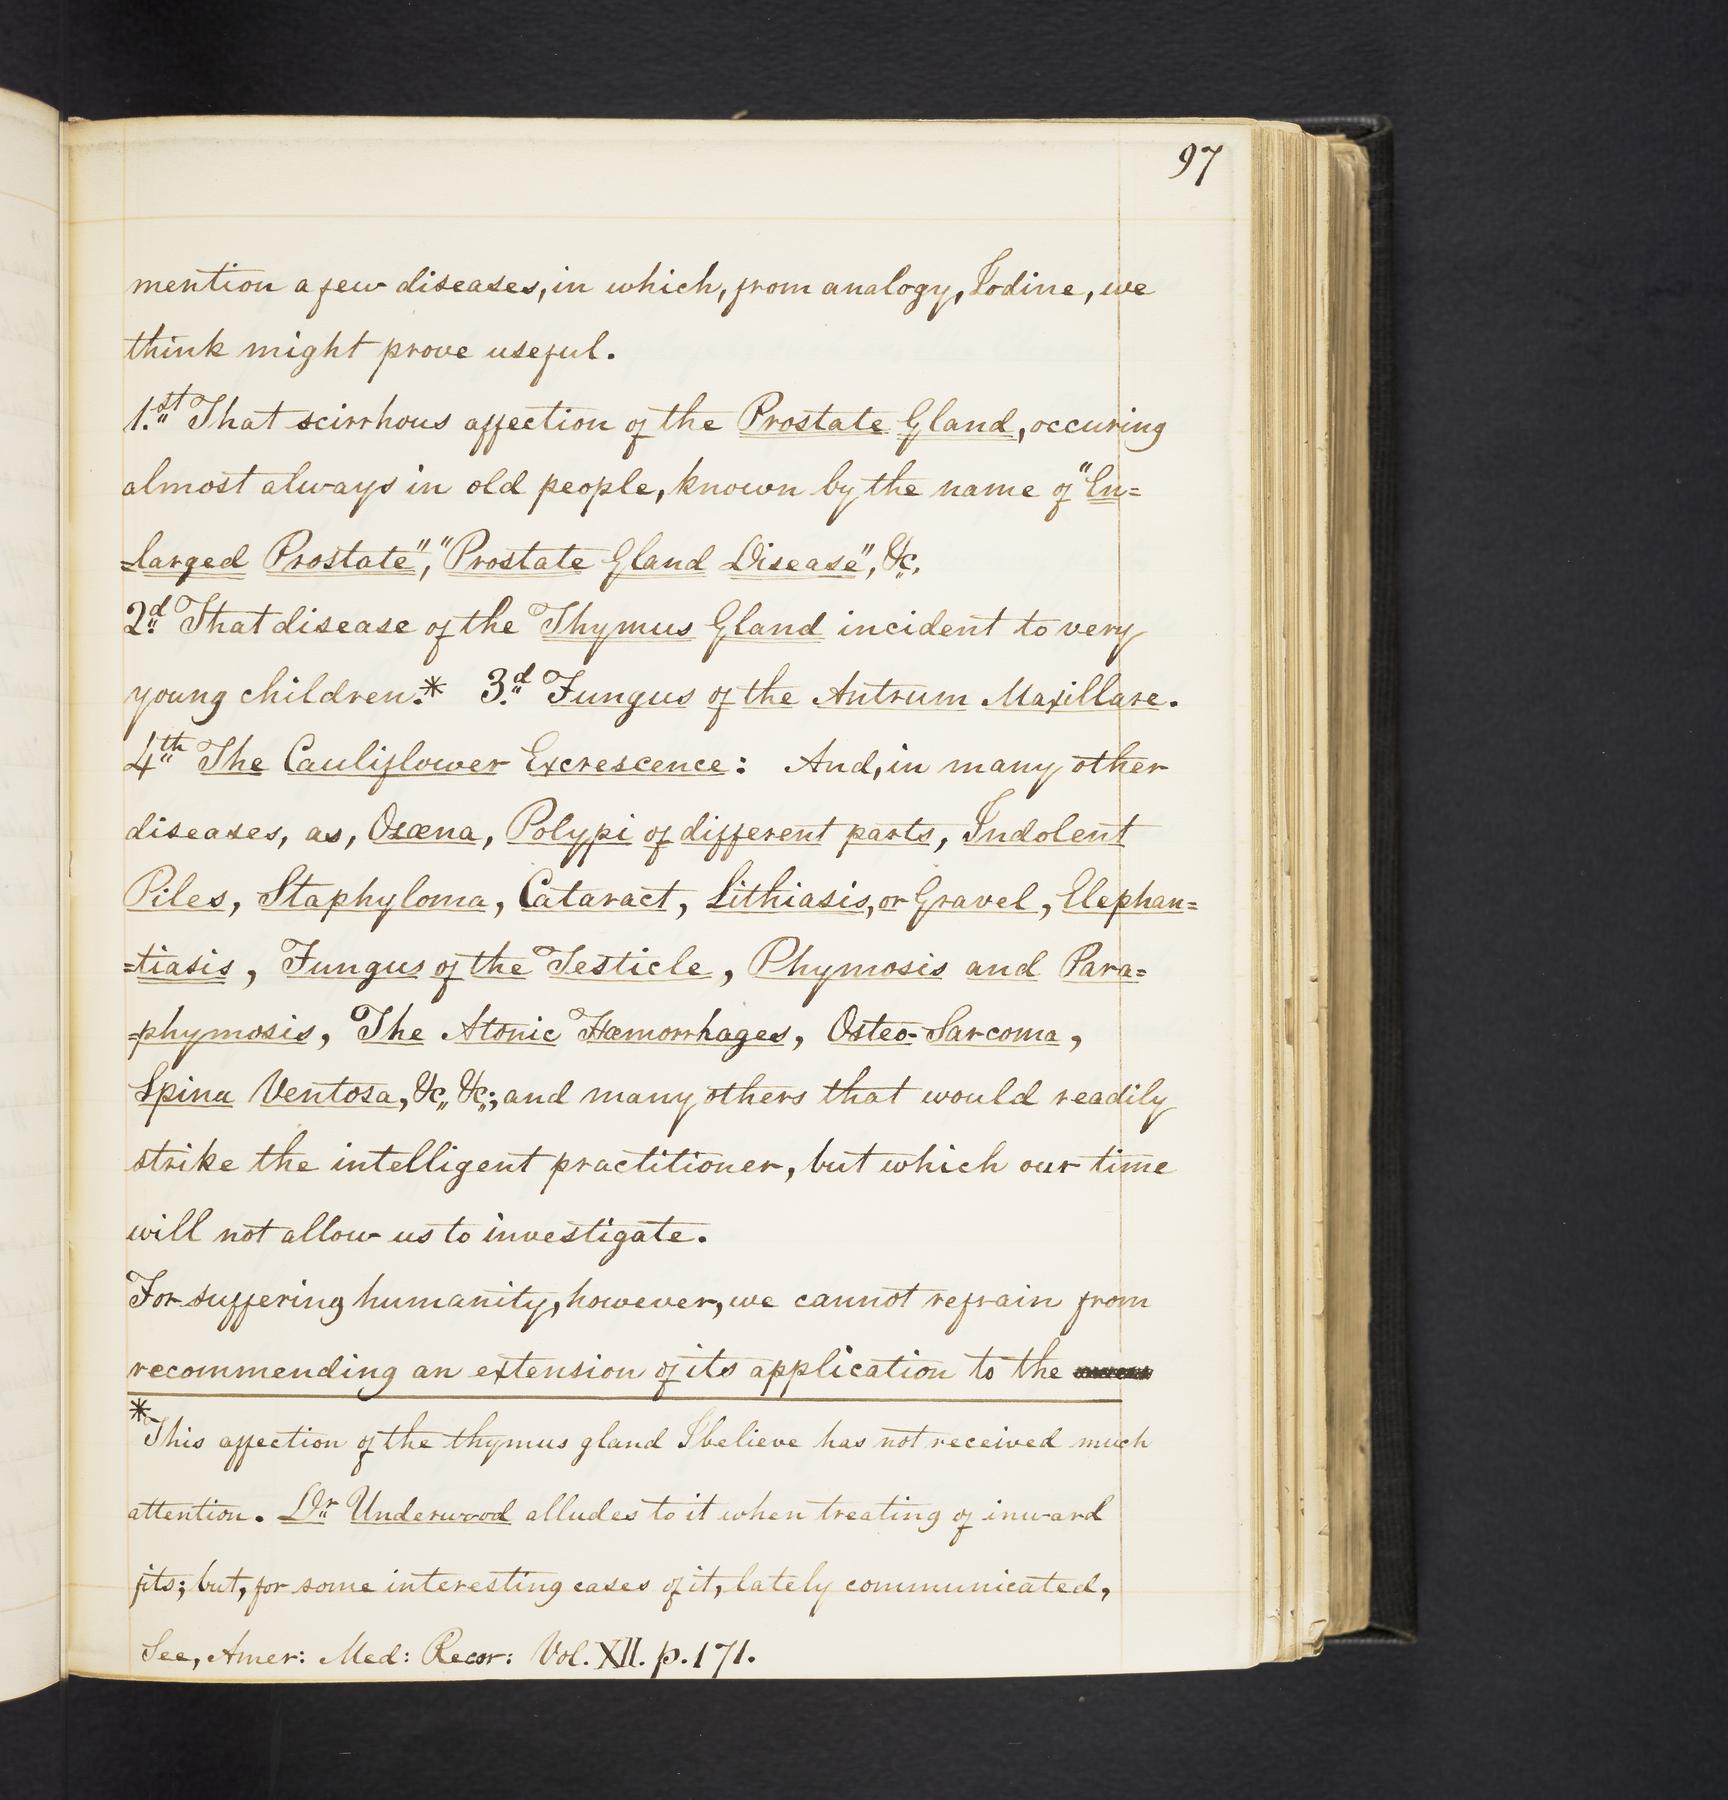 97
mention a few diseases, in which, from analogy, Iodine, we
think might prove useful.
1.st That scirrhous affection of the Prostate Gland, occuring
almost always in old people, known by the name of "En=
=larged Prostate", "Prostate Gland Disease", &c.
2.d That disease of the Thymus Gland incident to very
young children.* 3.d Fungus of the Antrum Maxillare.
4th The Cauliflower Excrescence: And, in many other
diseases, as, Ozœna, Polypi of different parts, Indolent
Piles, Staphyloma, Cataract, Lithiasis, or Gravel, Elephan=
=tiasis, Fungus of the Testicle, Phymosis and Para=
=phymosis, The Atonic Hæmorrhages, Osteo-Sarcoma,
Spina Ventosa, &c, &c; and many others that would readily
strike the intelligent practitioner, but which our time
will not allow us to investigate.
For suffering humanity, however, we cannot refrain from
recommending an extension of its application to the
* This affection of the thymus gland I believe has not received much
attention. Dr Underwood alludes to it when treating of inward
fits; but, for some interesting cases of it, lately communicated,
See, Amer: Med: Recor: Vol. XII. p. 171.